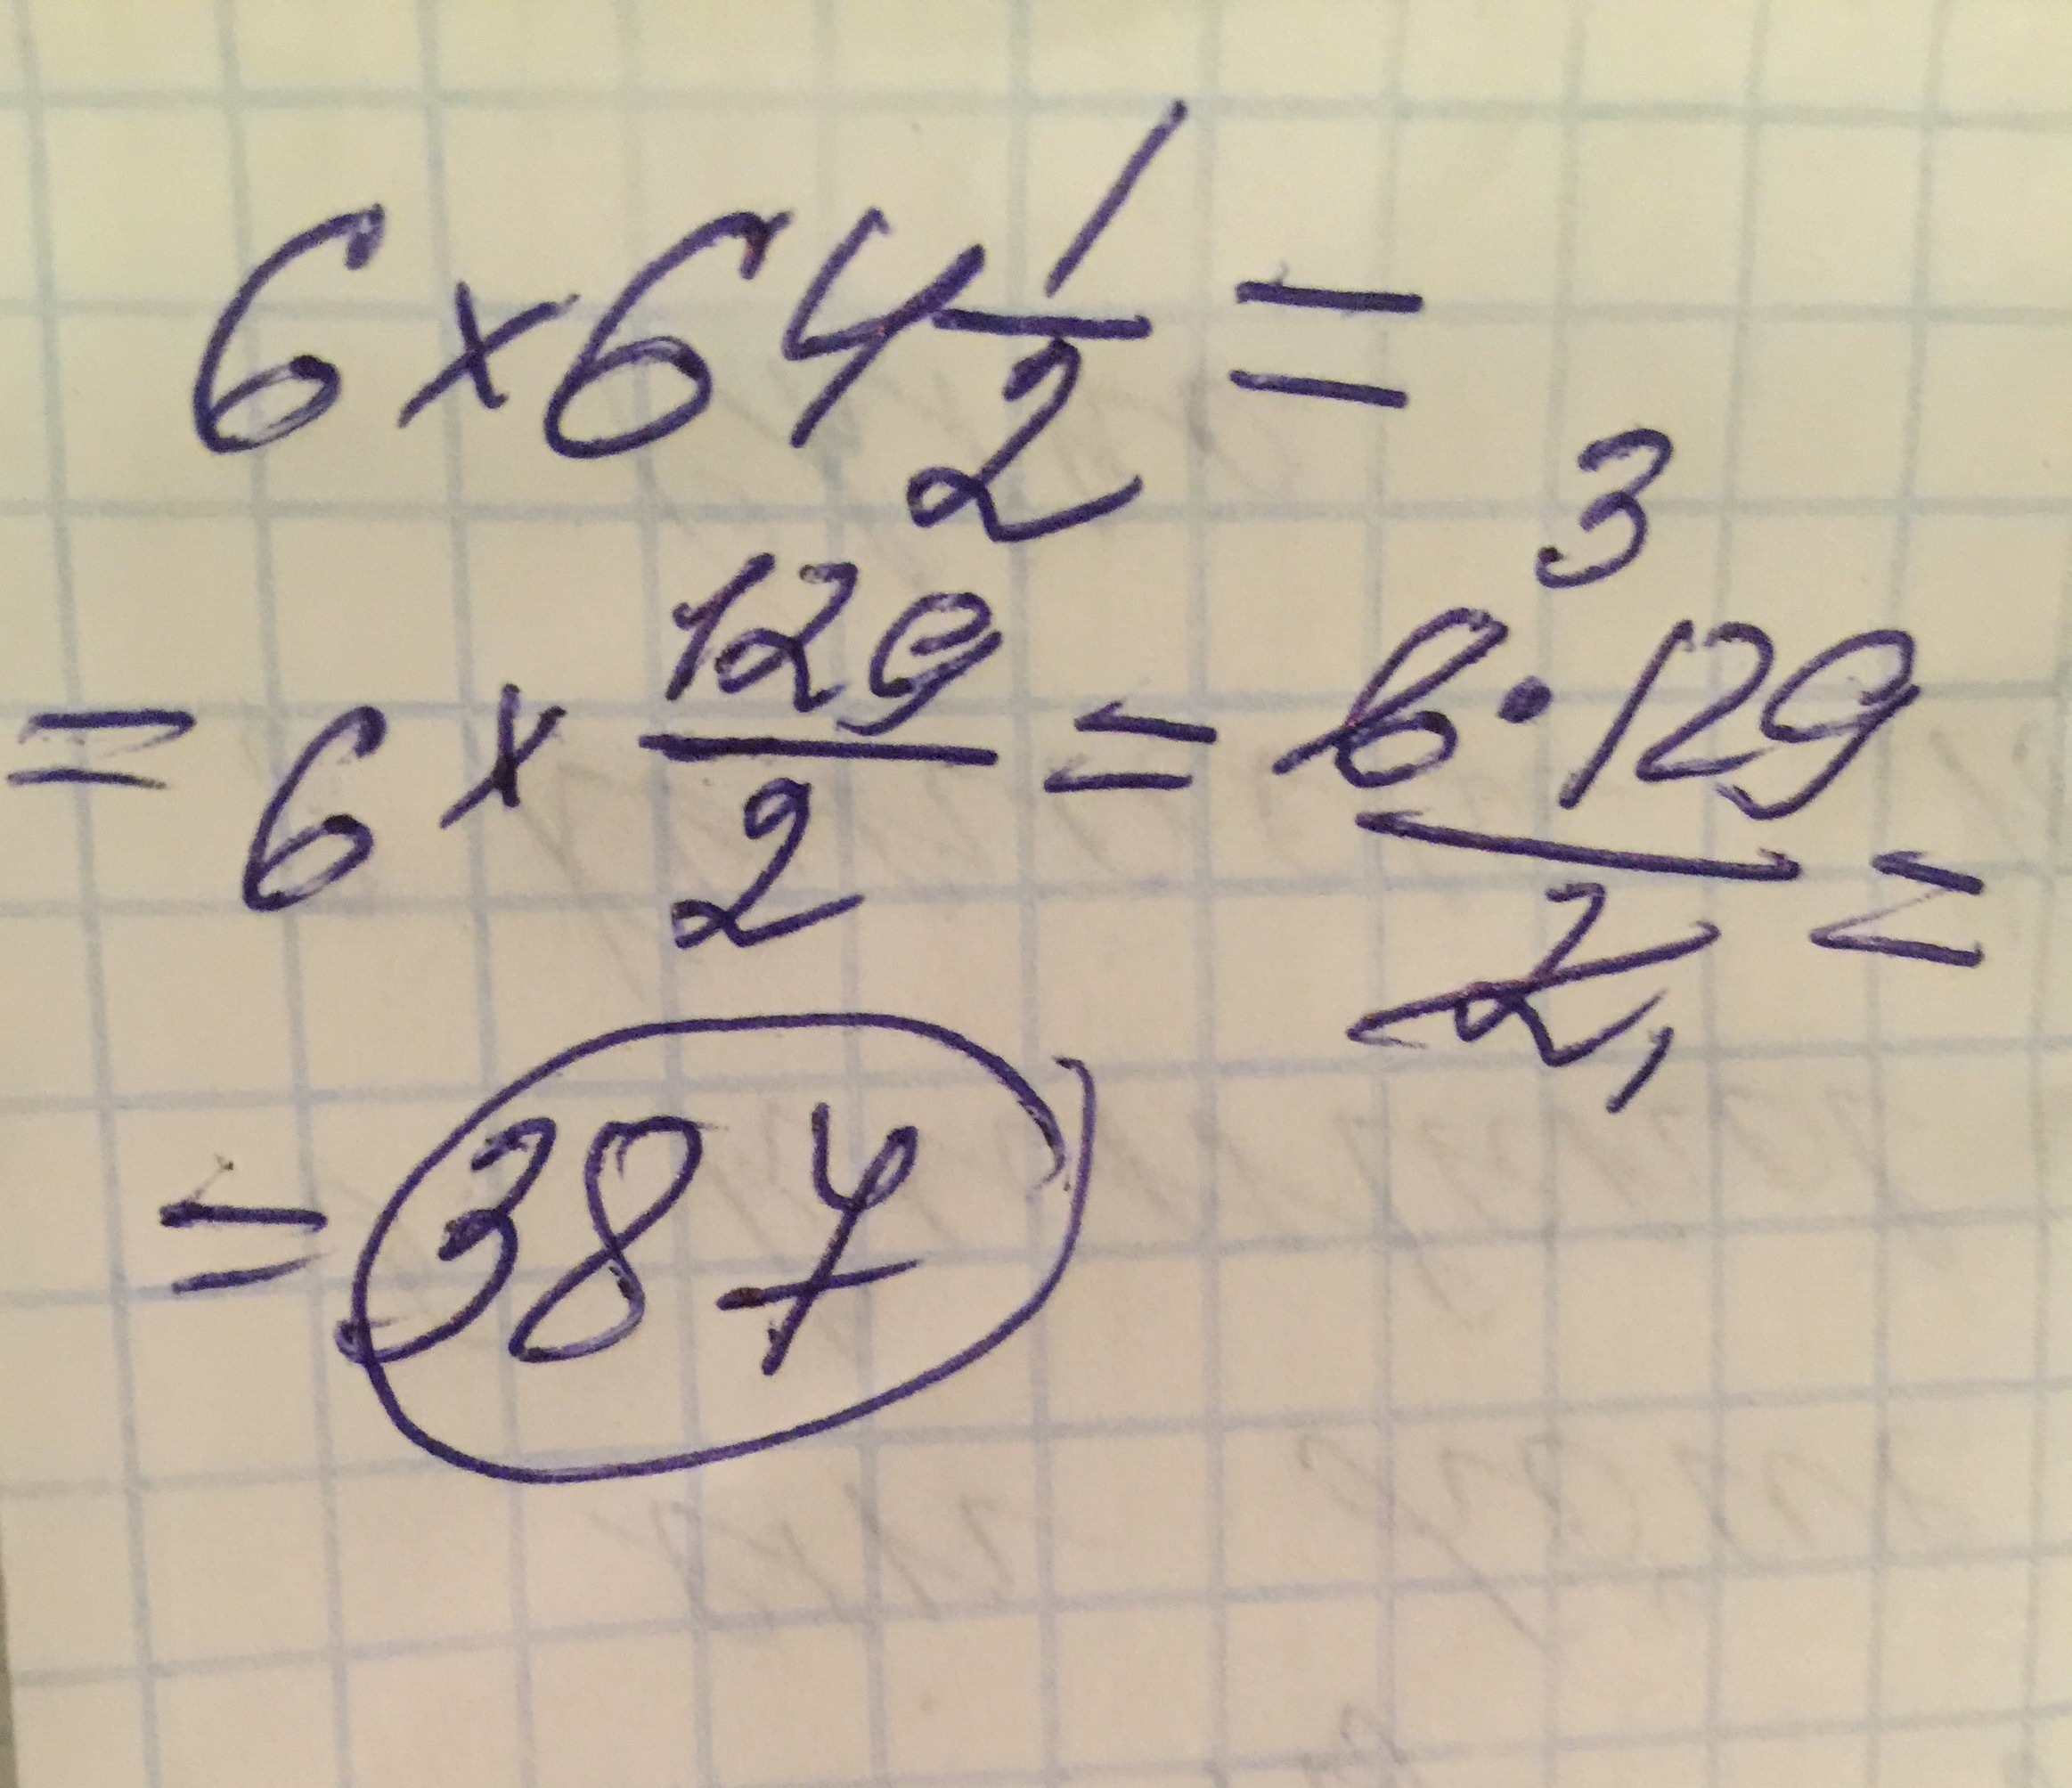 6 × 64 1/2 =
3
= 6 × 129/2 = 6 · 129/2 =
1
= 387